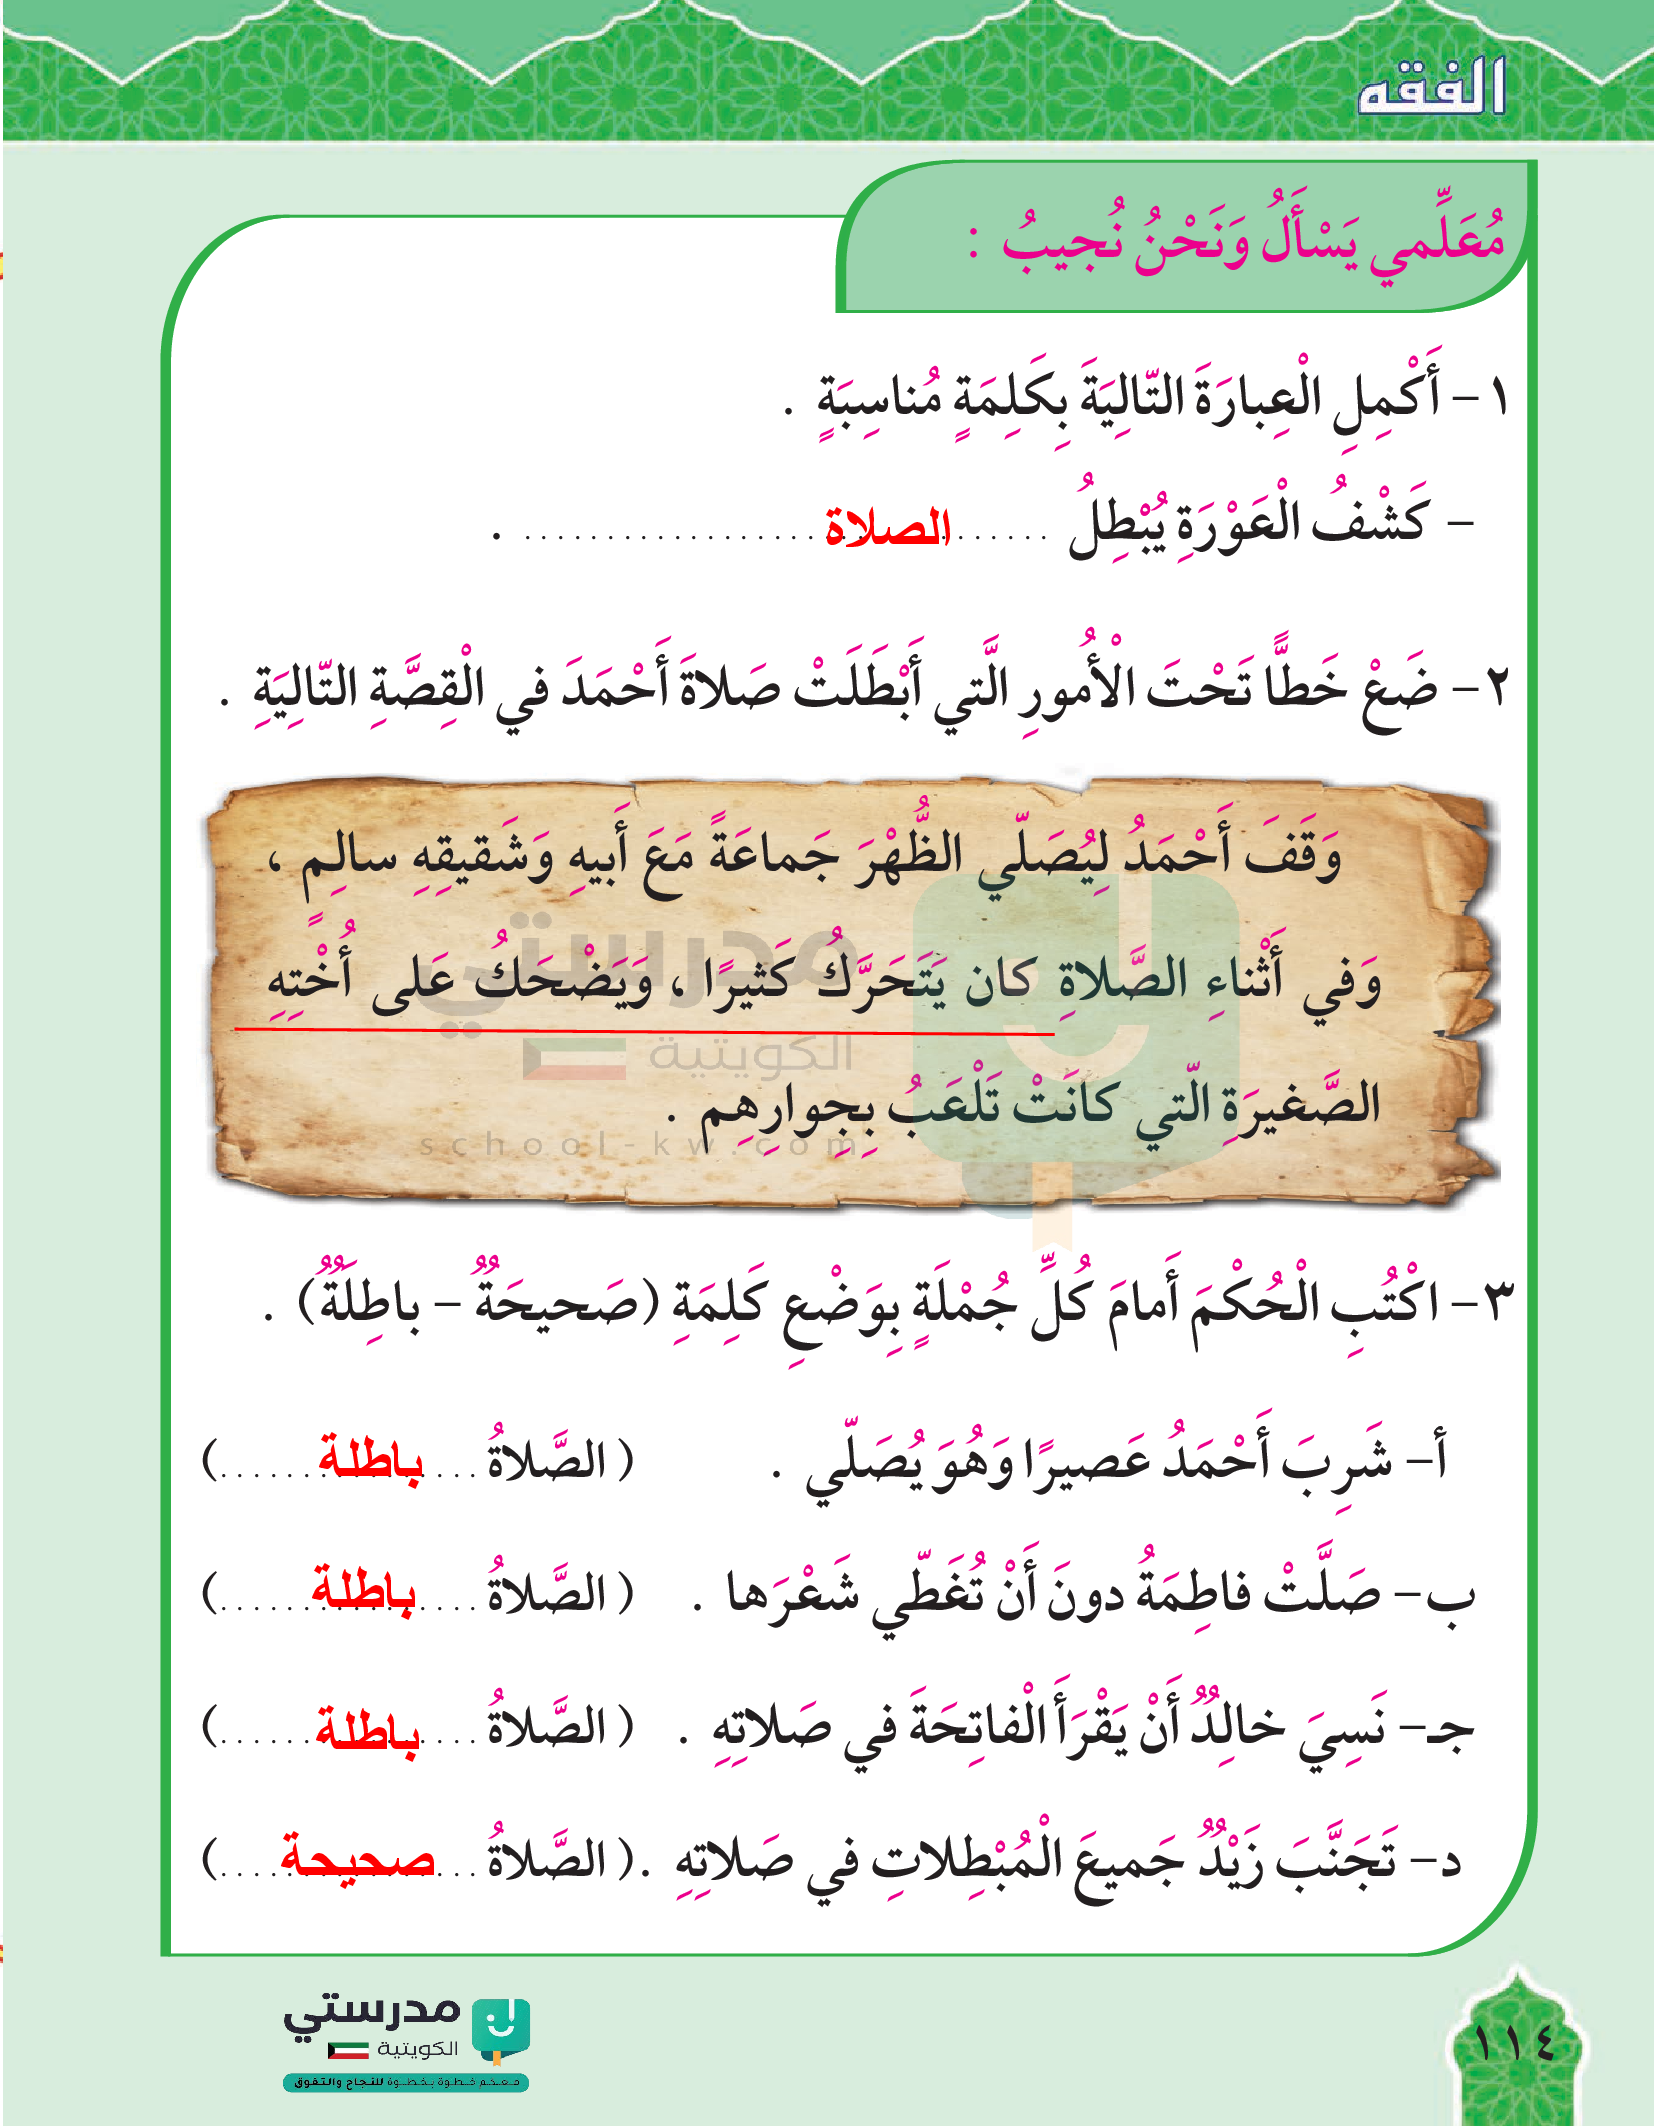 الفقه
مُعَلِّمي يَسْأَلُ وَنَحْنُ نُجيبُ :
١ - أَكْمِلِ الْعِبارَةَ التّالِيَةَ بِكَلِمَةٍ مُناسِبَةٍ .
- كَشْفُ الْعَوْرَةِ يُبْطِلُ ........ الصلاة ........ .
٢ - ضَعْ خَطًّا تَحْتَ الْأُمورِ الَّتي أَبْطَلَتْ صَلاةَ أَحْمَدَ في الْقِصَّةِ التّالِيَةِ .
وَقَفَ أَحْمَدُ لِيُصَلّي الظُّهْرَ جَماعَةً مَعَ أَبيهِ وَشَقيقِهِ سالِمٍ ،
وَفي أَثْناءِ الصَّلاةِ كان يَتَحَرَّكُ كَثيرًا ، وَيَضْحَكُ عَلى أُخْتِهِ
الصَّغيرَةِ الّتي كانَتْ تَلْعَبُ بِجِوارِهِم .
مدرستي
الكويتية
school-kw.com
٣ - اكْتُبِ الْحُكْمَ أَمامَ كُلِّ جُمْلَةٍ بِوَضْعِ كَلِمَةِ (صَحيحَةٌ - باطِلَةٌ) .
أ- شَرِبَ أَحْمَدُ عَصيرًا وَهُوَ يُصَلّي . ( الصَّلاةُ .... باطلة ....)
ب- صَلَّتْ فاطِمَةُ دونَ أَنْ تُغَطّي شَعْرَها . ( الصَّلاةُ .... باطلة ....)
جـ- نَسِيَ خالِدٌ أَنْ يَقْرَأَ الْفاتِحَةَ في صَلاتِهِ . ( الصَّلاةُ .... باطلة ....)
د- تَجَنَّبَ زَيْدٌ جَميعَ الْمُبْطِلاتِ في صَلاتِهِ . ( الصَّلاةُ .... صحيحة ....)
مدرستي
الكويتية
معكم خطوة بخطوة للنجاح والتفوق
١١٤